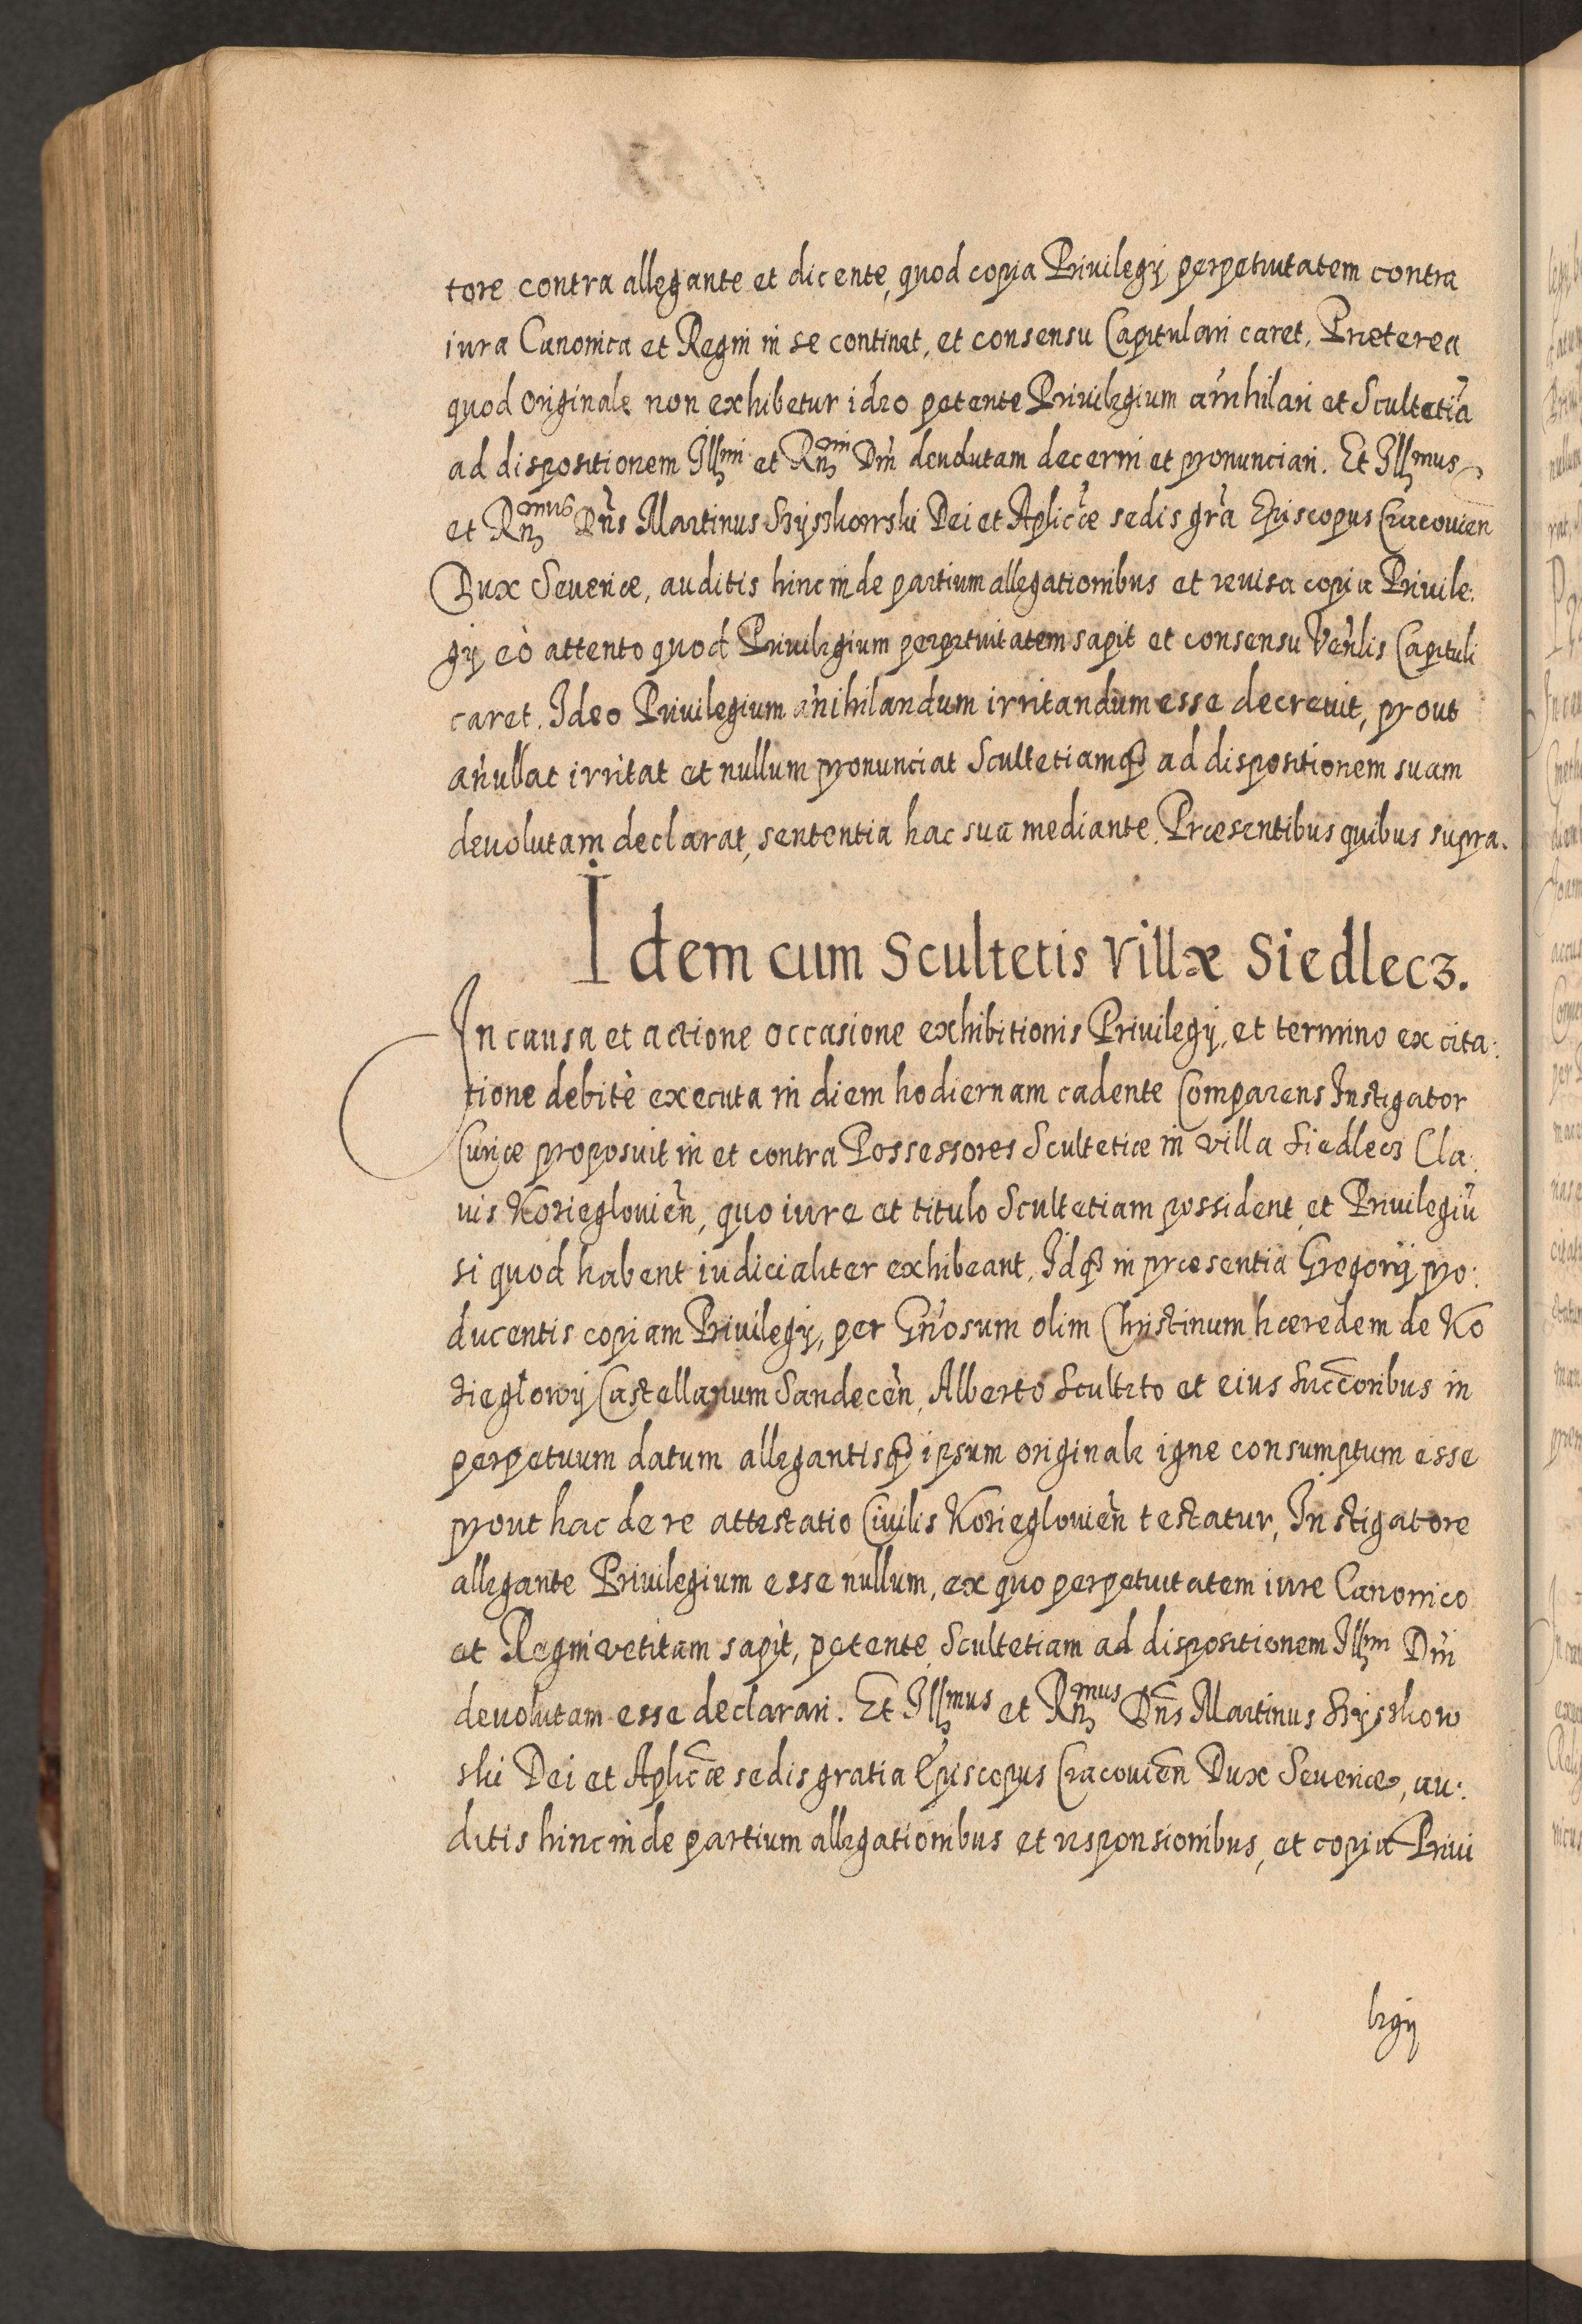 tore contra allegante et dicente, quod copia Priuilegÿ perpetuitatem contra
iura Canonica et Regni in se continet, et consensu Capitulari caret, Præterea
quod Originale non exhibetur ideo petente Priuilegium añihilari et Scultetiã
ad dispositionem Illmi et Rndmi Dñi deuolutam decerni et pronunciari. Et Illmus
et Rndmus Dñs Martinus Szyszkowski Dei et Aplicæ sedis grã Episcopus Cracouieñ
Dux Seueriæ, auditis hinc inde partium allegationibus et reuisa copia Priuile:
gÿ eò attento quod Priuilegium perpetuitatem sapit et consensu Veñlis Capituli
caret. Ideo Priuilegium añihilandum irritandum esse decreuit, prout
añullat irritat et nullum pronunciat Scultetiamq₃ ad dispositionem suam
deuolutam declarat, sententia hac sua mediante. Præsentibus quibus supra.
Idem cum Scultetis Villæ Siedlecz.
In causa et actione occasione exhibitionis Priuilegÿ, et termino ex cita:
tione debitè executa in diem hodiernam cadente Comparens Instigator
Curiæ proposuit in et contra Possessores Scultetiæ in villa Siedlecz Cla:
uis Kozieglouieñ, quo iure et titulo Scultetiam possident et Priuilegiũ
si quod habent iudicialiter exhibeant. Idq₃ in præsentia Gregorÿ pro:
ducentis copiam Priuilegÿ, per Gñosum olim Christinum hæredem de Ko
ziegłowÿ Castellanum Sandeceñ, Alberto Sculteto et eius Succ̃oribus in
perpetuum datum allegantisq₃ ipsum originale igne consumptum esse
prout hac de re attestatio Ciuilis Kozieglouieñ testatur, Instigatore
allegante Priuilegium esse nullum, ex quo perpetuitatem iure Canonico
et Regni vetitam sapit, petente Scultetiam ad dispositionem Illmi Dñi
deuolutam esse declarari. Et Illmus et Rndmus Dñs Martinus Szyszkow
ski Dei et Aplicæ sedis gratia Episcopus Cracouieñ Dux Seueriæ, au:
ditis hinc inde partium allegationibus et responsionibus, et copia Priui
legÿ